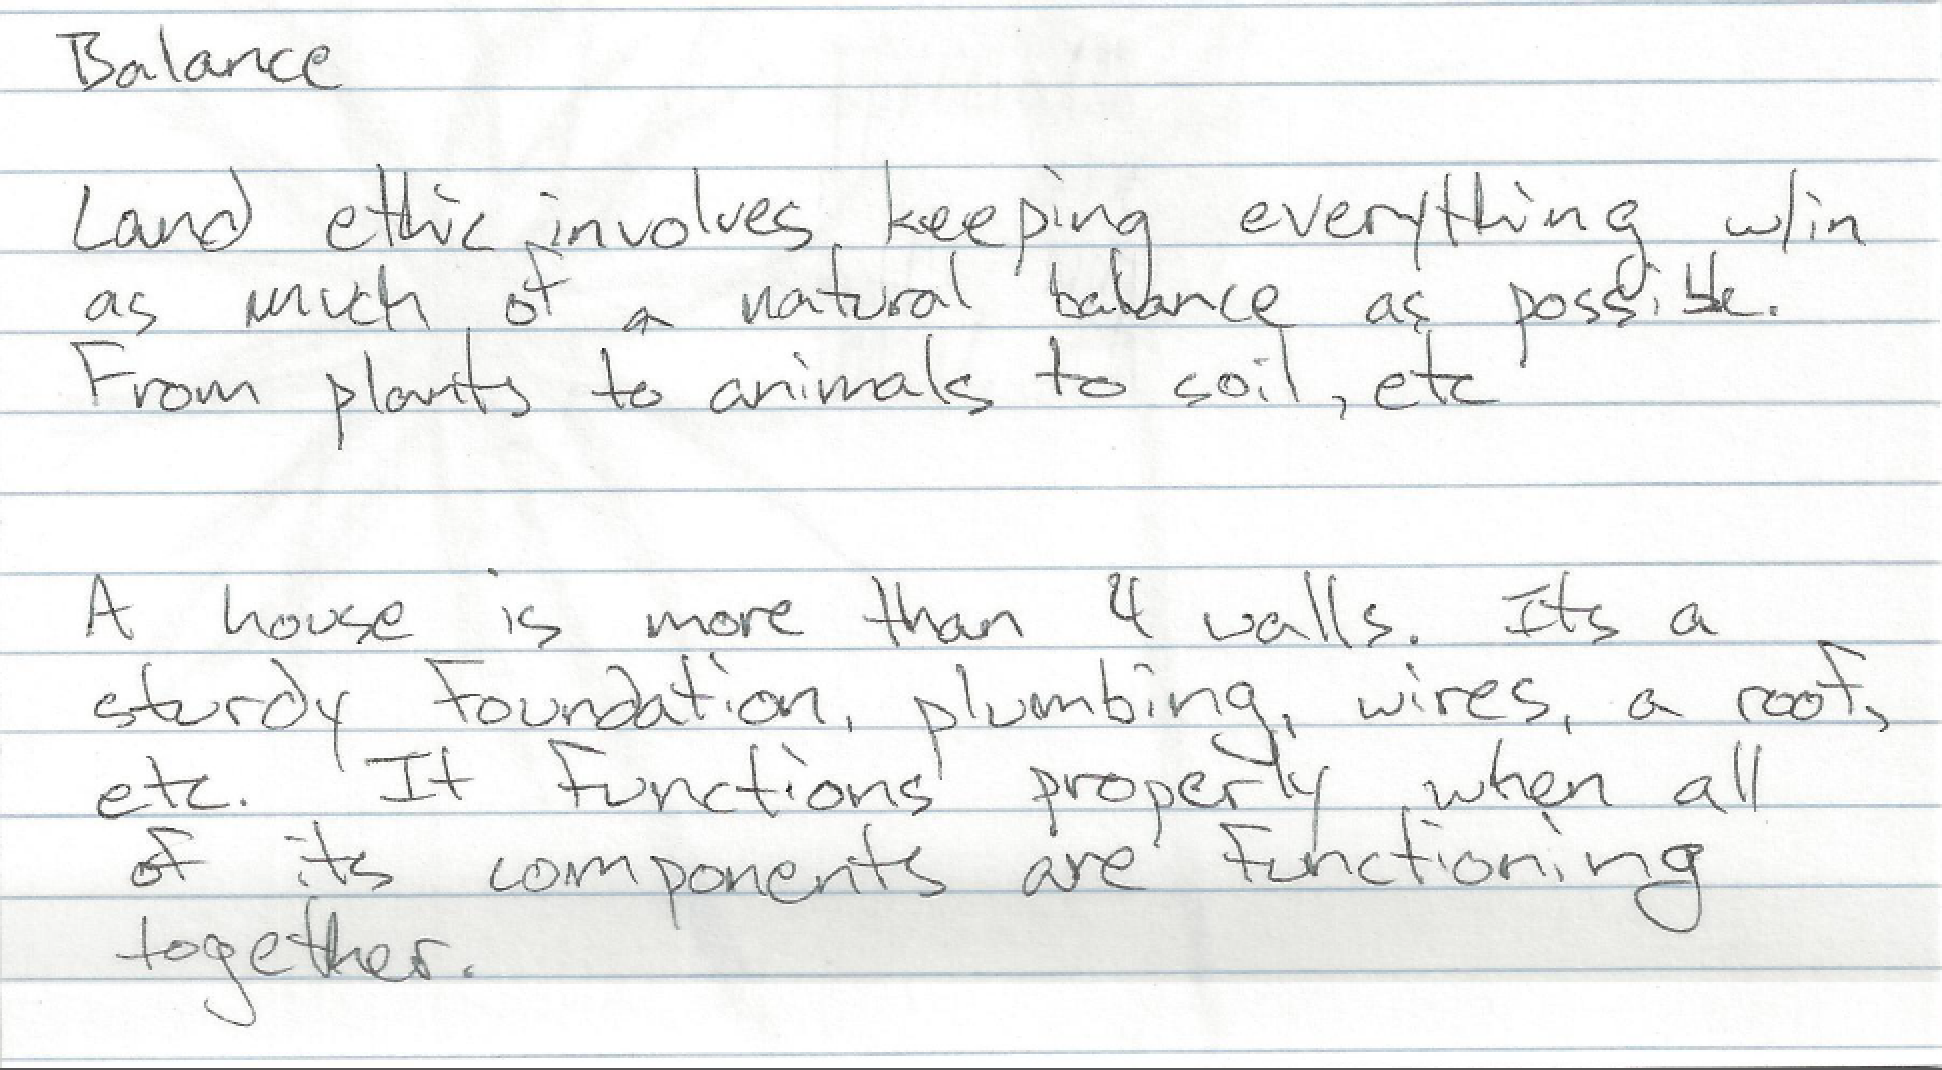 Balance
Land ethic involves keeping everything w/in
as much of a natural balance as possible.
From plants to animals to soil, etc
A house is more than 4 walls. Its a
sturdy foundation, plumbing, wires, a roof,
etc. It functions properly when all
of its components are functioning
together.